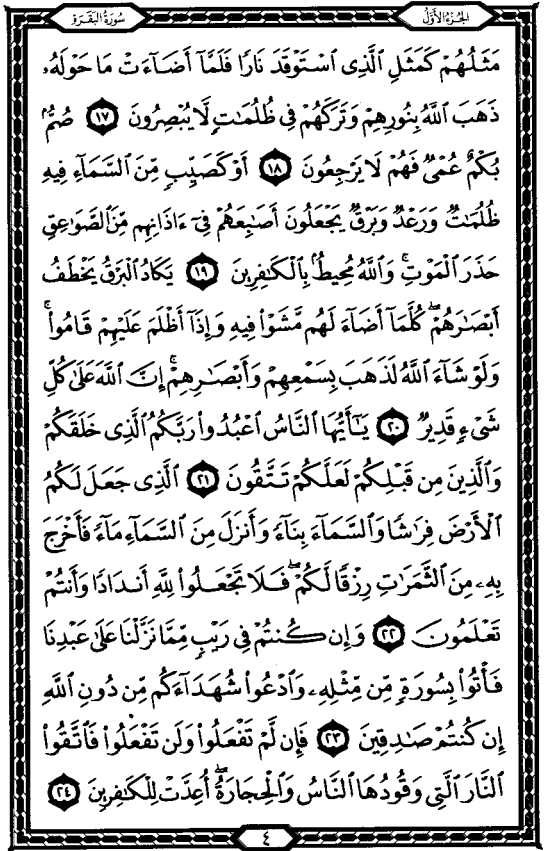 الجزء الأول
سورة البقرة
مَثَلُهُمْ كَمَثَلِ الَّذِي اسْتَوْقَدَ نَارًا فَلَمَّا أَضَاءَتْ مَا حَوْلَهُ
ذَهَبَ اللَّهُ بِنُورِهِمْ وَتَرَكَهُمْ فِي ظُلُمَاتٍ لَّا يُبْصِرُونَ ١٧ صُمٌّ
بُكْمٌ عُمْيٌ فَهُمْ لَا يَرْجِعُونَ ١٨ أَوْ كَصَيِّبٍ مِّنَ السَّمَاءِ فِيهِ
ظُلُمَاتٌ وَرَعْدٌ وَبَرْقٌ يَجْعَلُونَ أَصَابِعَهُمْ فِي ءَاذَانِهِم مِّنَ الصَّوَاعِقِ
حَذَرَ الْمَوْتِ ۚ وَاللَّهُ مُحِيطٌ بِالْكَافِرِينَ ١٩ يَكَادُ الْبَرْقُ يَخْطَفُ
أَبْصَارَهُمْ ۖ كُلَّمَا أَضَاءَ لَهُم مَّشَوْا فِيهِ وَإِذَا أَظْلَمَ عَلَيْهِمْ قَامُوا ۚ
وَلَوْ شَاءَ اللَّهُ لَذَهَبَ بِسَمْعِهِمْ وَأَبْصَارِهِمْ ۚ إِنَّ اللَّهَ عَلَىٰ كُلِّ
شَيْءٍ قَدِيرٌ ٢٠ يَا أَيُّهَا النَّاسُ اعْبُدُوا رَبَّكُمُ الَّذِي خَلَقَكُمْ
وَالَّذِينَ مِن قَبْلِكُمْ لَعَلَّكُمْ تَتَّقُونَ ٢١ الَّذِي جَعَلَ لَكُمُ
الْأَرْضَ فِرَاشًا وَالسَّمَاءَ بِنَاءً وَأَنزَلَ مِنَ السَّمَاءِ مَاءً فَأَخْرَجَ
بِهِ مِنَ الثَّمَرَاتِ رِزْقًا لَّكُمْ ۖ فَلَا تَجْعَلُوا لِلَّهِ أَندَادًا وَأَنتُمْ
تَعْلَمُونَ ٢٢ وَإِن كُنتُمْ فِي رَيْبٍ مِّمَّا نَزَّلْنَا عَلَىٰ عَبْدِنَا
فَأْتُوا بِسُورَةٍ مِّن مِّثْلِهِ وَادْعُوا شُهَدَاءَكُم مِّن دُونِ اللَّهِ
إِن كُنتُمْ صَادِقِينَ ٢٣ فَإِن لَّمْ تَفْعَلُوا وَلَن تَفْعَلُوا فَاتَّقُوا
النَّارَ الَّتِي وَقُودُهَا النَّاسُ وَالْحِجَارَةُ ۖ أُعِدَّتْ لِلْكَافِرِينَ ٢٤
٤